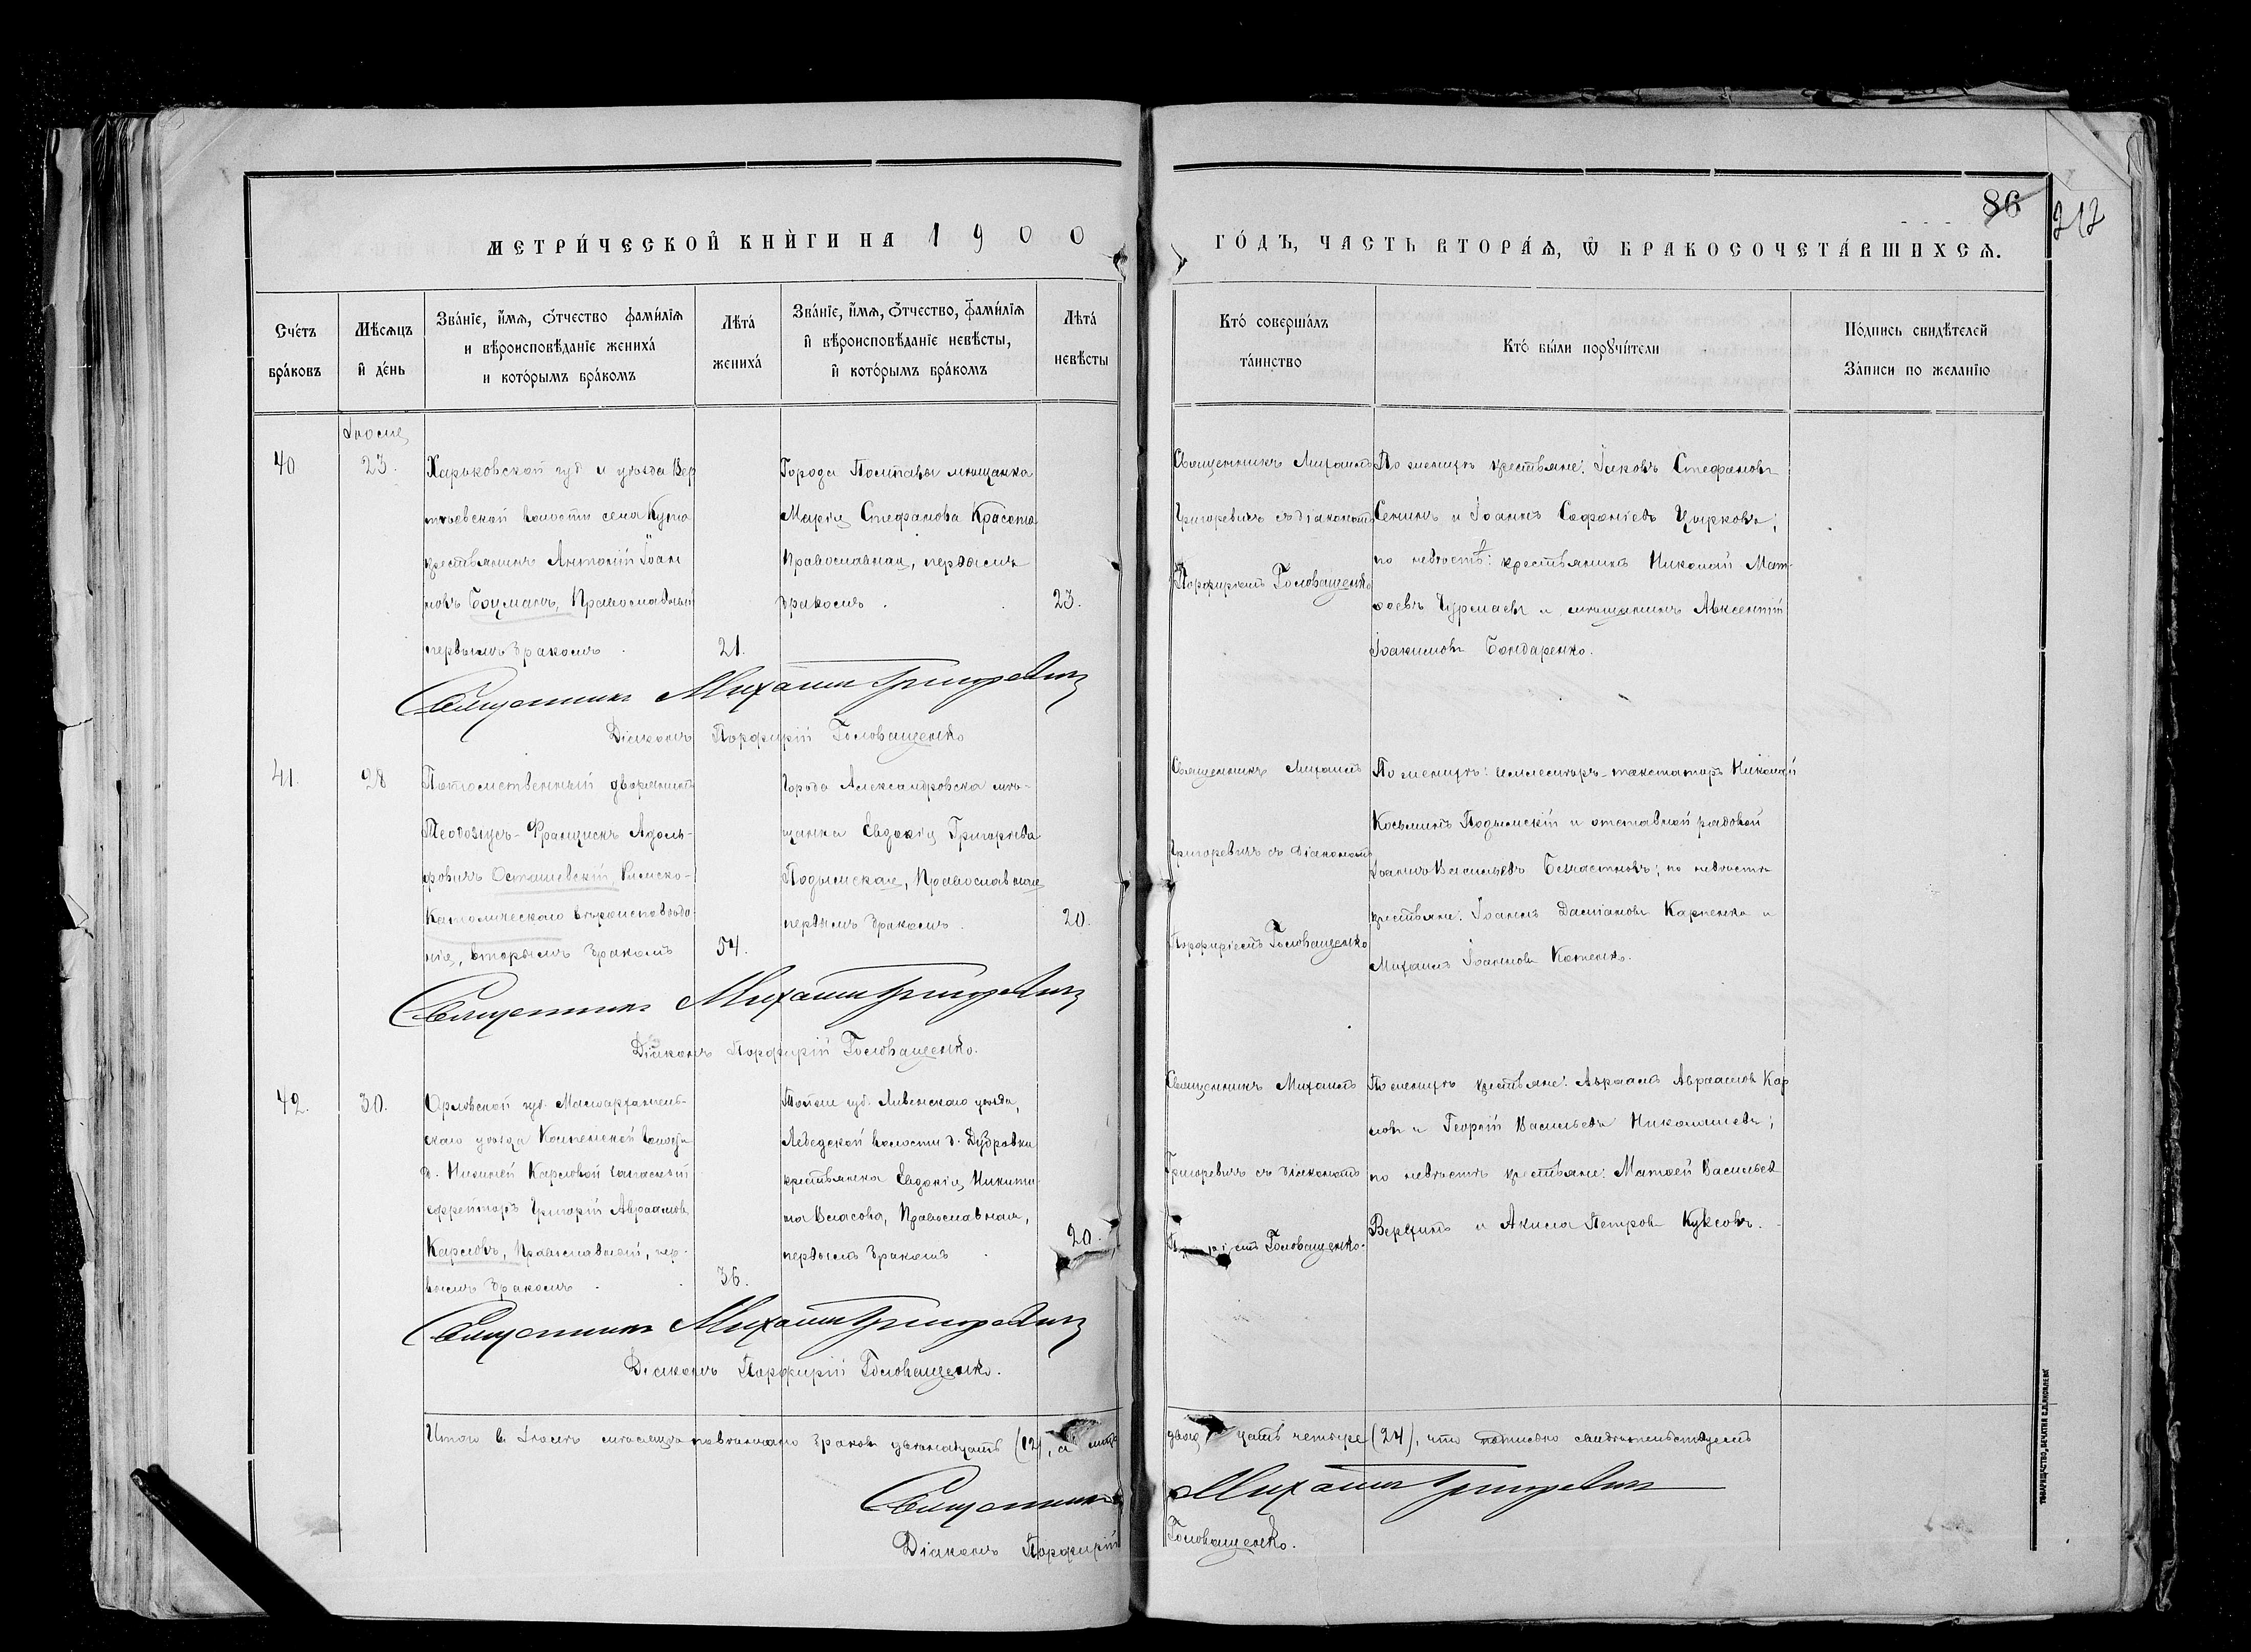 86
212
МЕТРИ́ЧЕСКОЙ КНИ́ГИ НА 1900
ГО́ДЪ, ЧАСТЬ ВТОРА́Ѧ, Ѡ҆ БРАКОСОЧЕТА́ВШИХСѦ.
Сче́тъ бра́ковъ
Мѣ́сѧцъ и҆ де́нь
Зва́нїе, и҆́мѧ, ѻ҆́тчество фами́лїѧ и вѣроисповѣ́данїе жениха́ и кото́рымъ бра́комъ
Лѣта́ жениха́
Зва́нїе, и҆́мѧ, ѻ҆́тчество, фами́лїѧ и҆ вѣроисповѣ́данїе невѣ́сты, и҆ кото́рымъ бра́комъ
Лѣта́ невѣ́сты
Кто́ соверша́лъ та́инство
Кто́ бы́ли порꙋчи́тели
По́дпись свидѣ́телей За́писи по жела́нїю
40
23.
Харьковской губ и уѣзда Вер
тьевской волости села Кута
крестьянинъ Антоній Іоан
новъ Боцманъ, Православный
первымъ бракомъ
21.
Города Полтавы мѣщанка
Марія Стефанова Красота
Православная, первымъ
бракомъ.
23.
Священникъ Михаилъ
Григоревичъ съ діакономъ
Порфиріемъ Головащенко
По женихѣ крестьяне: Іаковъ Стефановъ
Сенинъ и Іоаннъ Софоніевъ Цырковъ;
по невѣстѣ: крестьянинъ Николай Мат-
ѳеевъ Чурмаевъ и мѣщанинъ Авксентій
Іоакимовъ Бондаренко.
Священникъ Михаилъ Григоревичъ
Діаконъ Порфирій Головащенко
41.
28
Потомственный дворянинъ
Теодозіусъ-Францискъ Адоль-
фовичъ Осташевскій, Римско-
Католическаго вѣроисповѣда
нія, вторымъ бракомъ
54.
Города Александровска мѣ-
щанка Евдокія Григорьева
Подымская, Православная
первымъ бракомъ.
20.
Священникъ Михаилъ
Григоревичъ съ діакономъ
Порфиріемъ Головащенко
По женихѣ: землемѣръ-таксаторъ Николай
Косьминъ Подымскій и отставной рядовой
Іоаннъ Васильевъ Безчастновъ; по невѣстѣ
крестьяне: Іоаннъ Даміановъ Карпенко и
Михаилъ Іоанновъ Котенко.
Священникъ Михаилъ Григоревичъ
Діаконъ Порфирій Головащенко.
42.
30.
Орловской губ. Малоархангель-
скаго уѣзда волости
д. Нижней Карловой запасный
ефрейторъ Григорій Авраамовъ
Карловъ, Православный, пер-
вымъ бракомъ
36.
Тойже губ. Ливенскаго уѣзда,
Лебедской волости д. Дубровки
крестьянка Евдокія Никити
на Власова, Православная,
первымъ бракомъ
20.
Священникъ Михаилъ
Григоревичъ съ діакономъ
Головащенко.
По женихѣ крестьяне: Авраамъ Авраамовъ Кар
ловъ и Георгій Васильевъ Николашевъ;
по невѣстѣ крестьяне: Матѳей Васильевъ
и Акила Петровъ Куксовъ.
Священникъ Михаилъ Григоревичъ
Діаконъ Порфирій Головащенко.
Итого въ Іюлѣ мѣсяцѣ повѣнчано браковъ двѣнадцать (12), а лицъ
двадцать четыре (24), что подписью свидѣтельствуемъ
Священникъ Михаилъ Григоревичъ
Діаконъ Порфирій Головащенко.